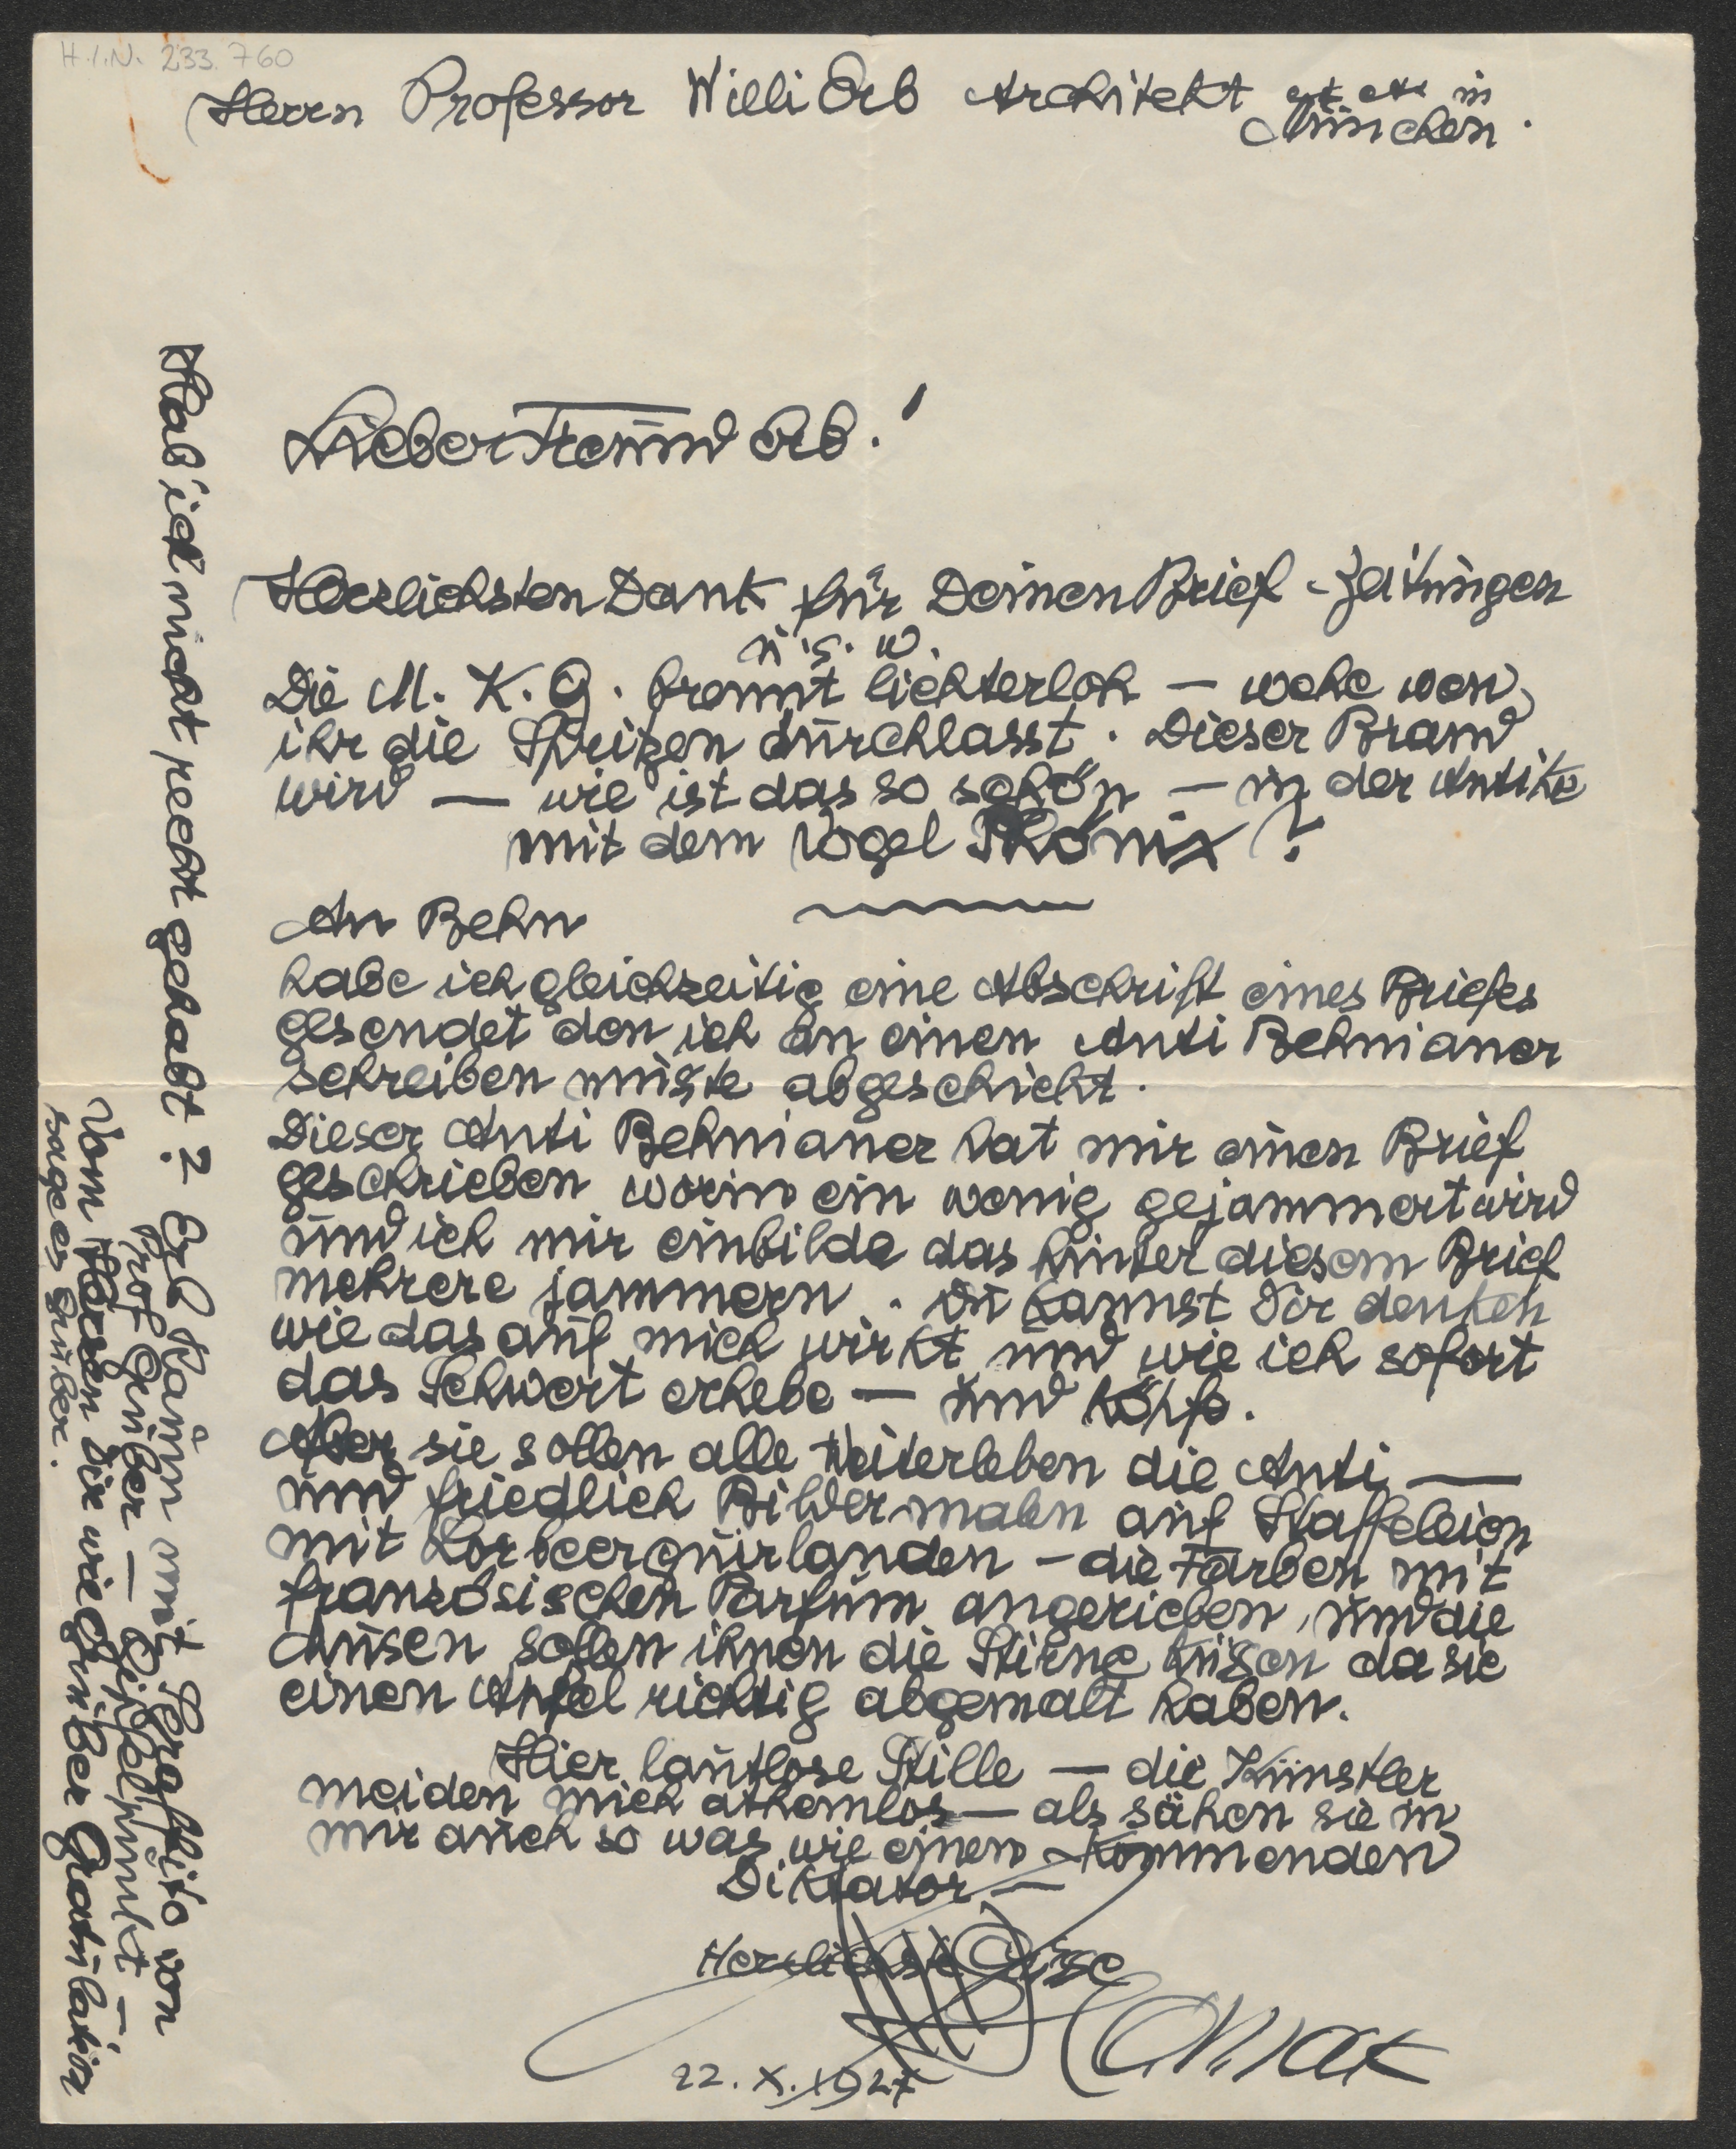 H.I.N. 233.760
Herrn Professor Willi Orb Architekt etc etc in
München.
Lieber Freund Orb!
Herzlichsten Dank für Deinen Brief - Zeitungen
u.s.w.
Die M. K. G. brennt lichterloh — wehe wen
ihr die Sprizen durchlasst. Dieser Brand
wird — wie ist das so schön — in der Antike
mit dem Vogel Phönix?
An Behn
habe ich gleichzeitig eine Abschrift eines Briefes
gesendet den ich an einen Anti Behnianer
schreiben muste abgeschickt.
Dieser Anti Behnianer hat mir einen Brief
geschrieben worin ein wenig gejammert wird
und ich mir einbilde das hinter diesem Brief
mehrere jammern. Du kannst Dir denken
wie das auf mich wirkt und wie ich sofort
das Schwert erhebe — und köpfe.
Aber sie sollen alle weiterleben die Anti —
und friedlich Bilder malen auf Staffeleien
mit Lorbeerguirlanden — die Farben mit
französischen Parfum angerieben, und die
Musen sollen ihnen die Stirne küssen da sie
einen Apfel richtig abgemalt haben.
Hier lautlose Stille — die Künstler
meiden mich athemlos — als sähen sie in
mir auch so was wie einen kommenden
Diktator —
Herzlichst Grüse
22. X. 1927
Hab' ich nicht recht gehabt? Der Raum mit Seraffito von
Prof Gruber — Gipfelpunkt —
Vom Herzen Dir wie Gruber Gratulation
sage es Gruber.